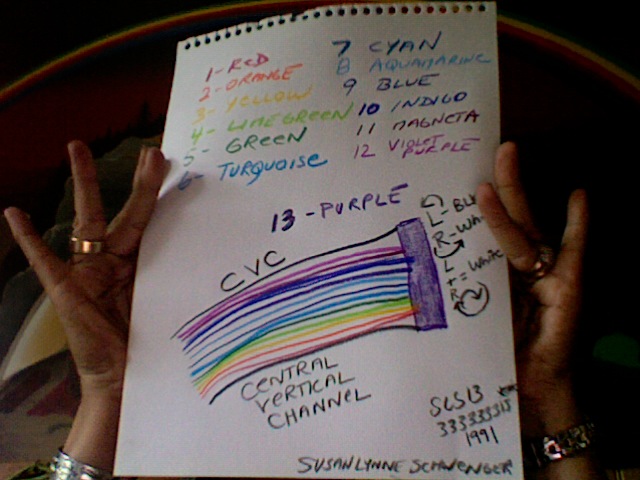 1-RED
2-ORANGE
3-YELLOW
4-LIMEGREEN
5-GREEN
6-TURQUOISE
7 CYAN
8 AQUAMARINE
9 BLUE
10 INDIGO
11 MAGNETA
12 VIOLET
PURPLE
13-PURPLE
CVC
L-BLK
R-WH
L
+ = WHITE
R
CENTRAL
VERTICAL
CHANNEL
SLS13
1991
SUSANLYNNE SCHWENGER